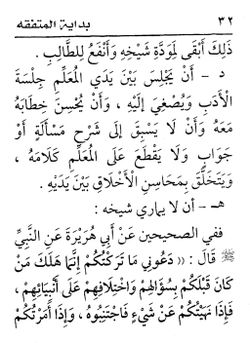 ٣٢ بداية المتفقه
ذَلِكَ أَبْقَى لِمَوَدَّةِ شَيْخِهِ وَأَنْفَعُ لِلطَّالِبِ.
د - أَنْ يَجْلِسَ بَيْنَ يَدَيِ الْمُعَلِّمِ جِلْسَةَ
الْأَدَبِ وَيُصْغِيَ إِلَيْهِ ، وَأَنْ يُحْسِنَ خِطَابَهُ
مَعَهُ وَأَنْ لَا يَسْبِقَ إِلَى شَرْحِ مَسْأَلَةٍ أَوْ
جَوَابٍ وَلَا يَقْطَعَ عَلَى الْمُعَلِّمِ كَلَامَهُ ،
وَيَتَخَلَّقَ بِمَحَاسِنِ الْأَخْلَاقِ بَيْنَ يَدَيْهِ .
هـ - أن لا يماري شيخه :
ففي الصحيحين عَنْ أَبِي هُرَيْرَةَ عَنِ النَّبِيِّ
ﷺ قَالَ : « دَعُونِي مَا تَرَكْتُكُمْ إِنَّمَا هَلَكَ مَنْ
كَانَ قَبْلَكُمْ بِسُؤَالِهِمْ وَاخْتِلَافِهِمْ عَلَى أَنْبِيَائِهِمْ ،
فَإِذَا نَهَيْتُكُمْ عَنْ شَيْءٍ فَاجْتَنِبُوهُ ، وَإِذَا أَمَرْتُكُمْ